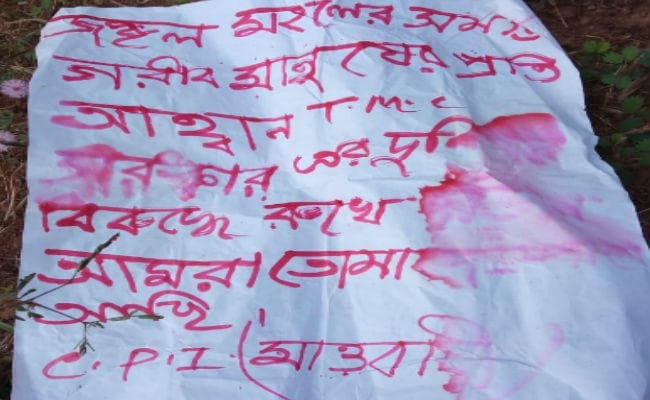 জঙ্গল মহলের সমস্ত
গরীব মানুষের প্রতি
আহ্বান T.M.C
সরকার এর দুর্নী
বিরুদ্ধে রুখে
আমরা তোমা
আছি
C.P.I (মাওবাদী